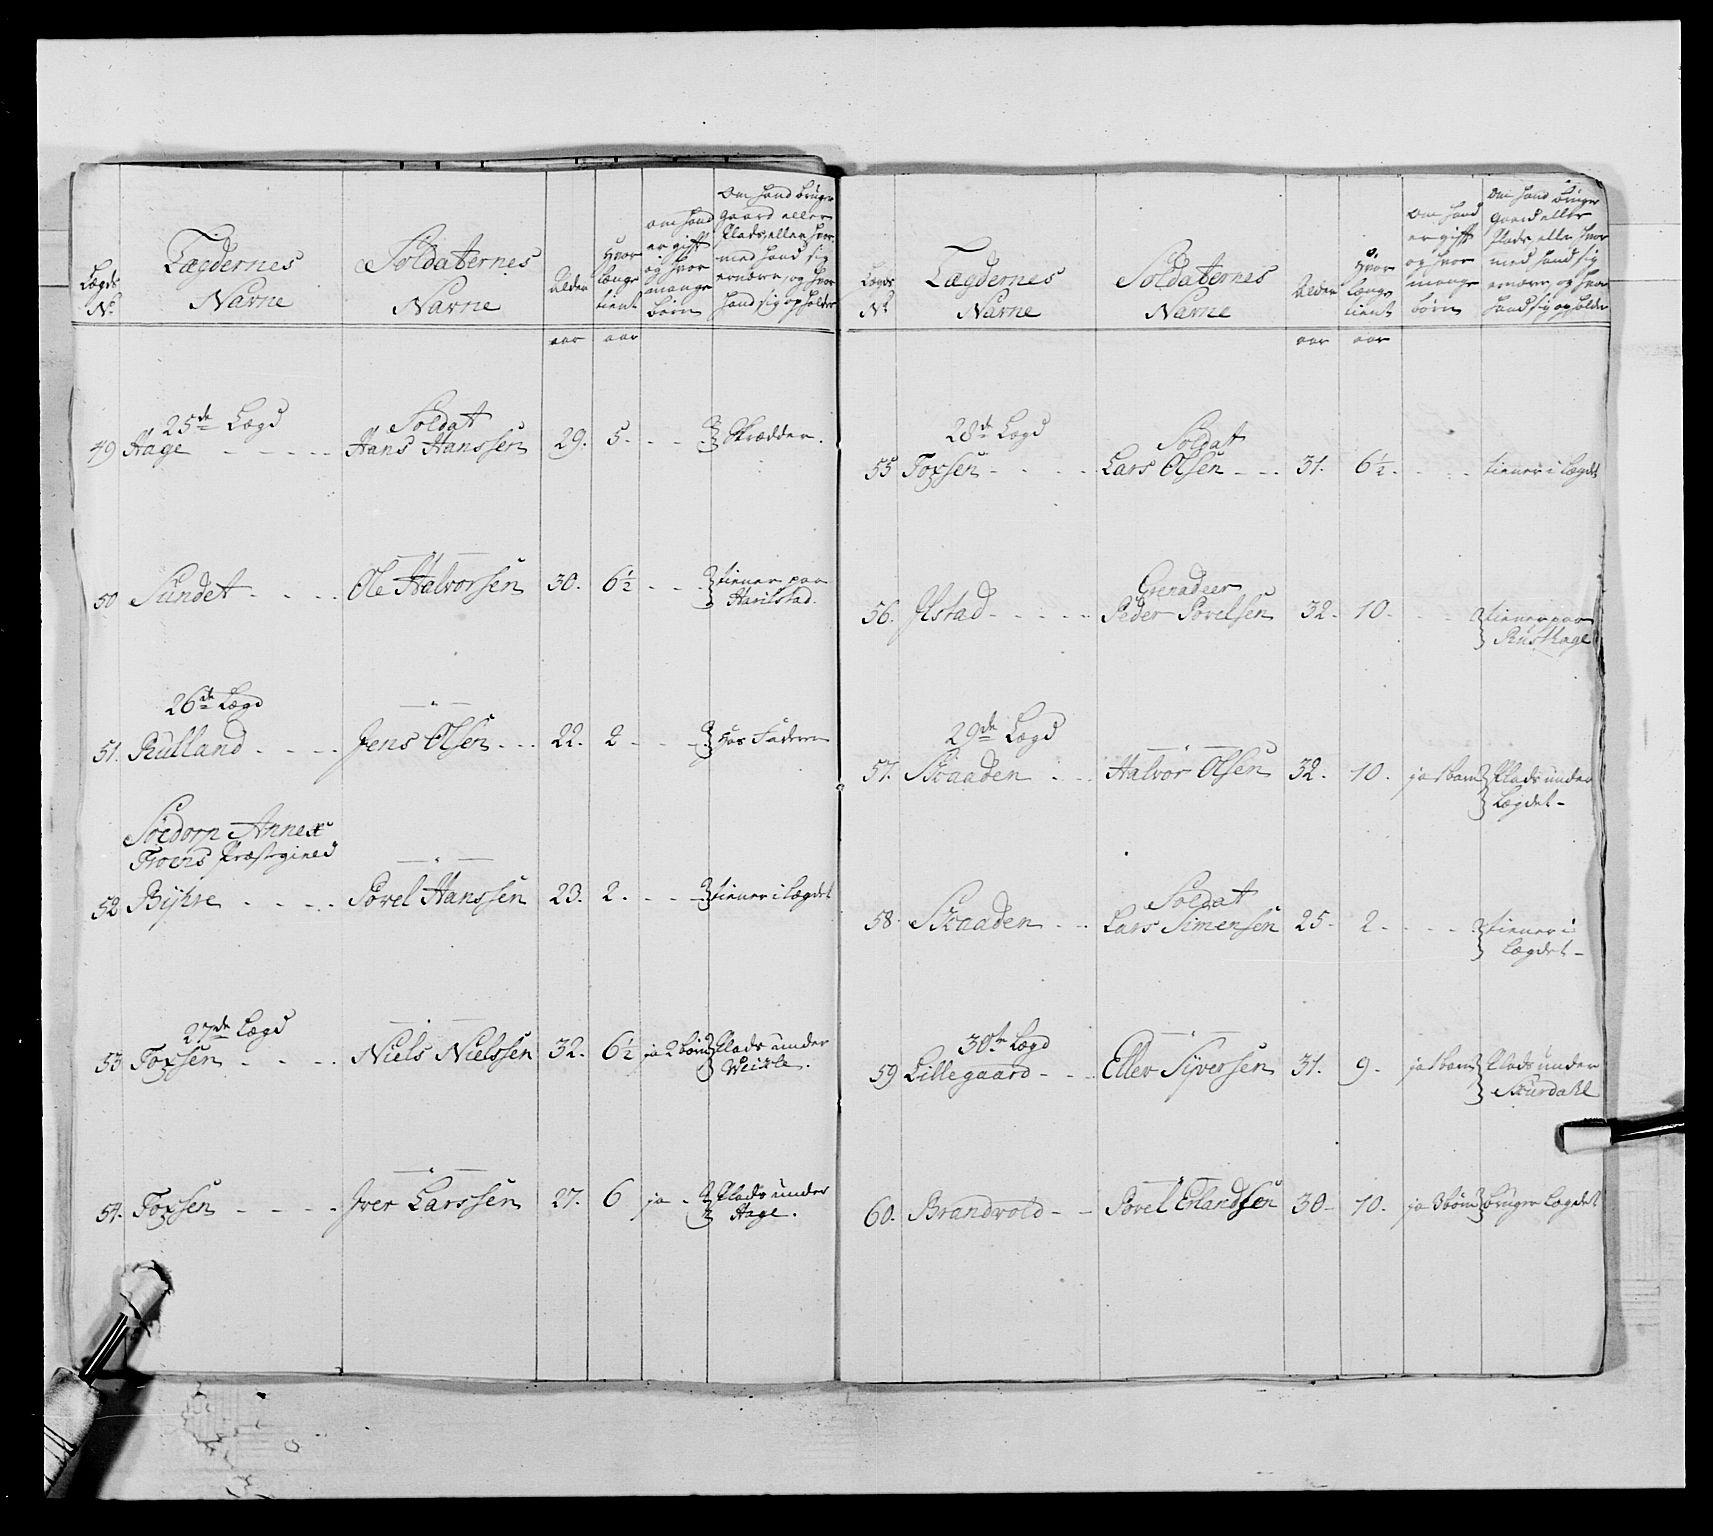 Lægds
N.º
Lægdernes
Navne
Soldaternes
Navne
Alder
Hvor
længe
tient
om hand
er gift
og hvor
mange
børn
Om hand bruger
Gaard eller
Plads, eller hvor
med hand sig
ernære, og hvor
hand sig opholder
aar
aar
25de Lægd
Soldat
49 Hage - - - - - Hans Hanssen 29. 5. - - Skrædder.
50 Sundet - - - - Ole Halvorsen 30. 6½ - - - tiener paa
Harilstad.
26de Lægd
51. Rulland - - - - Jens Olsen - - - 22. 2 - - - Hos Faderen
Soedorp Annex
Froens Præstegield
52. Byhre - - - - Povel Hanssen 23. 2. - - - tiener i Lægdet
27de Lægd
53. Foxsen - - - - Niels Nielssen 32. 6½ ja 2 børn Plads under
Weikle.
54. Foxsen - - - - Iver Larssen 27. 6 ja - Plads under
Hage.
Lægds
N.º
Lægdernes
Navne
Soldaternes
Navne
Alder
Hvor
længe
tient
Om hand
er gift
og hvor
mange
børn
Om hand bruger
Gaard eller
Plads eller hvor
med hand sig
ernære, og hvor
hand sig opholder
aar
aar
28de Lægd
Soldat
55 Foxsen - - - - Lars Olsen - - - 31. 6½ - - - - tiener i Lægdet
Grenadeer
56. Ilstad - - - - - Peder Povelsen 32. 10. - - tiener paa
Rusthage
29de Lægd
57. Skaaden - - - Halvor Olsen 32. 10. ja 1 barn Plads under
Lægdet -
Soldat
58. Skaaden - - - Lars Simensen 25. 2 - - - - tiener i
Lægdet -
30te Lægd
59 Lillegaard - - - Ellev Syversen 31. 9. ja 1 barn Plads under
Skurdahl
60. Brandvold - - Povel Erlandsen 30 - 10. ja 3 børn bruger Lægdet